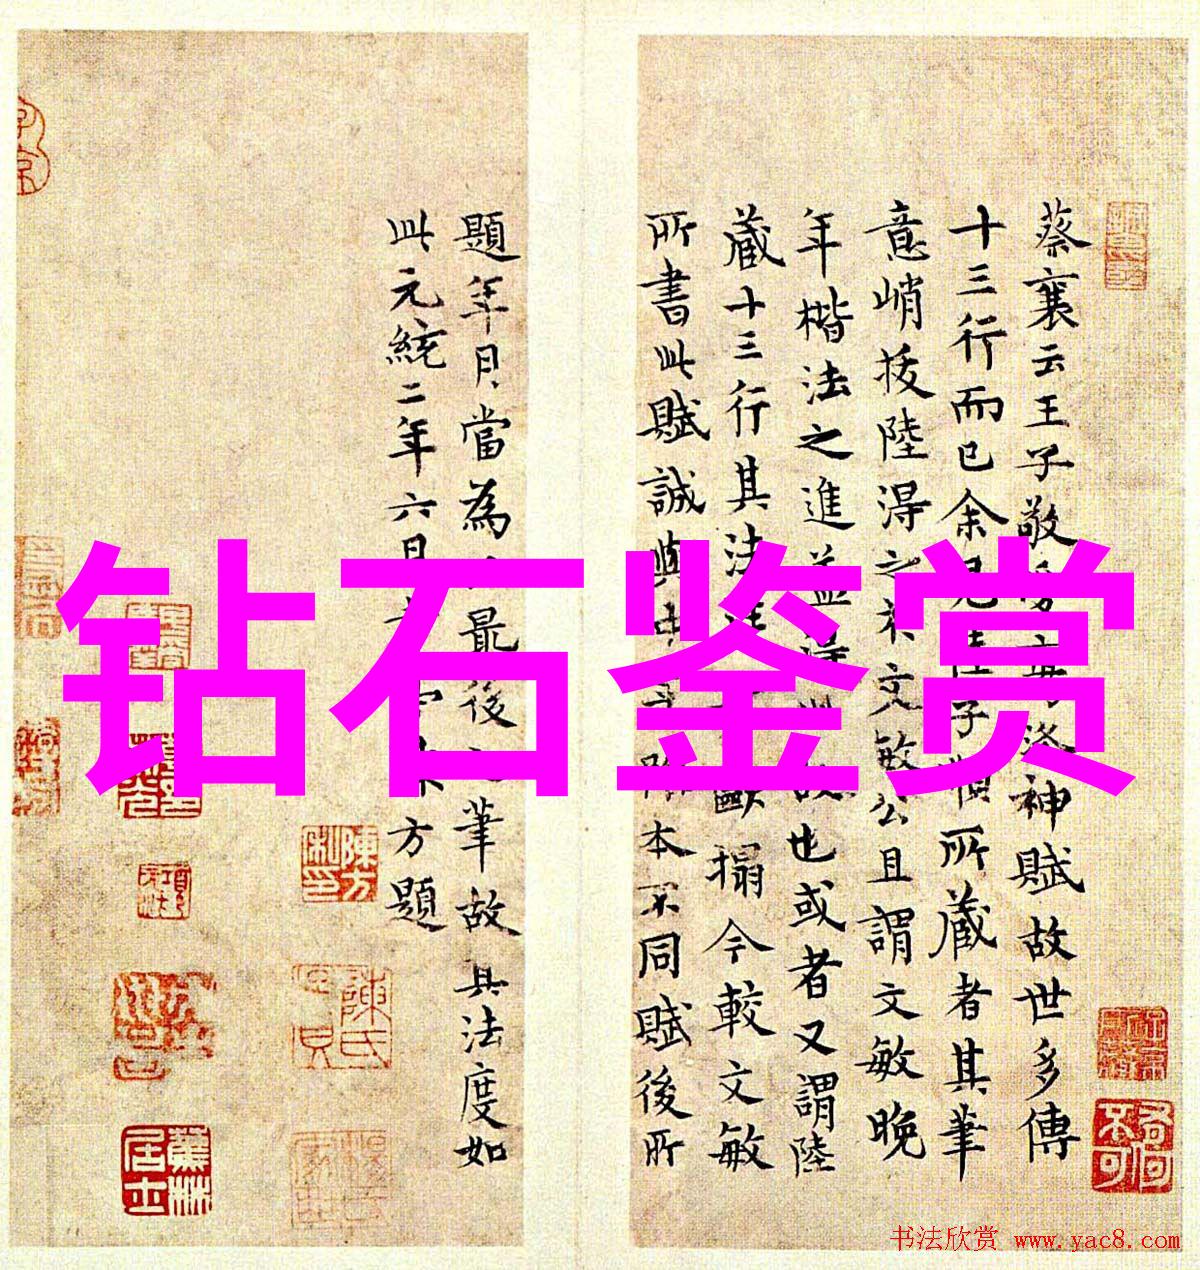 钻石鉴赏
蔡襄云王子敬洛神賦故世多傳
十三行而已余見陸子順所藏者其筆
意峭拔陸得之於文敏公且謂文敏晚
年楷法之進蓋得此故也或者又謂陸
藏十三行其法歐搨今較文敏
所書此賦誠與本不同賦後所
題年月當為最後之筆故其法度如
此元統二年六月方題
陳方私印
蕉林居士
书法欣赏 www.yac8.com